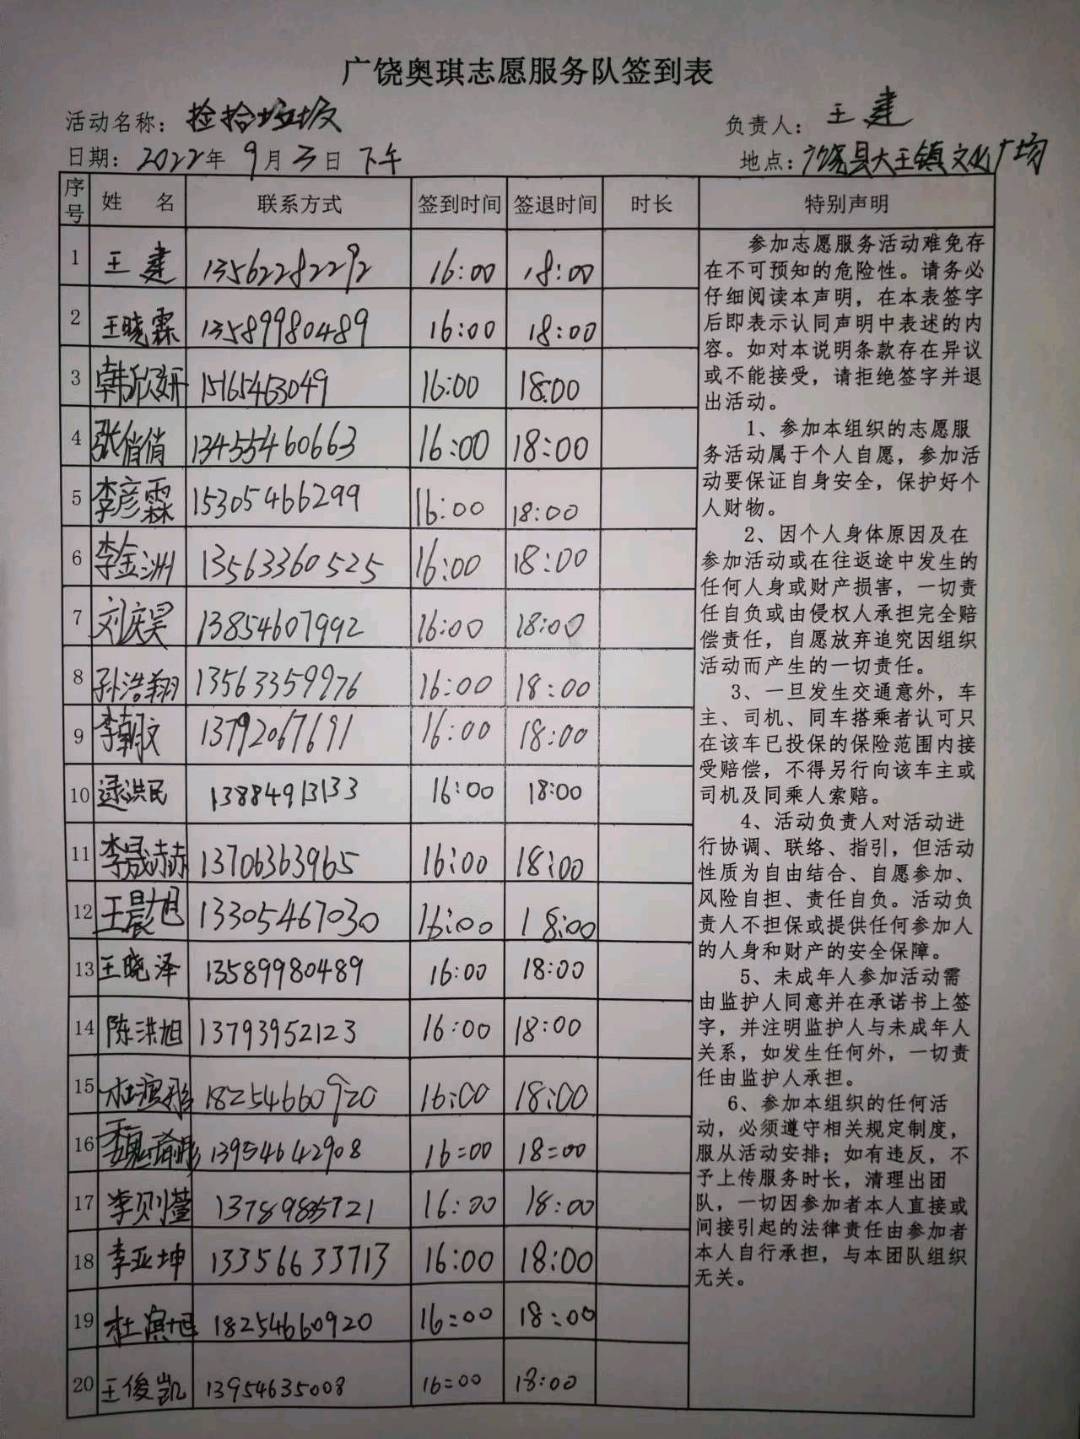 广饶奥琪志愿服务队签到表
活动名称：捡拾垃圾 负责人：王建
日期：2022年9月3日下午 地点：广饶县大王镇文化广场
序号 姓名 联系方式 签到时间 签退时间 时长 特别声明
1 王建 13562282292 16:00 18:00
2 王晓霖 13589980489 16:00 18:00
3 韩欣妍 15165463049 16:00 18:00
4 张俏俏 13455460663 16:00 18:00
5 李彦霖 15305466299 16:00 18:00
6 李金洲 13563360525 16:00 18:00
7 刘庆昊 13854607992 16:00 18:00
8 孙浩翔 13563359976 16:00 18:00
9 李朝文 13792067691 16:00 18:00
10 逯洪民 13884913133 16:00 18:00
11 李晟赫 13706363965 16:00 18:00
12 王晨旭 13305467030 16:00 18:00
13 王晓泽 13589980489 16:00 18:00
14 陈洪旭 13793952123 16:00 18:00
15 杜滨彤 18254660920 16:00 18:00
16 魏瑜彤 13954642908 16:00 18:00
17 李则萱 16:00 18:00
18 李亚坤 13356633713 16:00 18:00
19 杜滨旭 18254660920 16:00 18:00
20 王俊凯 13954635008 16:00 18:00
参加志愿服务活动难免存
在不可预知的危险性。请务必
仔细阅读本声明，在本表签字
后即表示认同声明中表述的内
容。如对本说明条款存在异议
或不能接受，请拒绝签字并退
出活动。
1、参加本组织的志愿服
务活动属于个人自愿，参加活
动要保证自身安全，保护好个
人财物。
2、因个人身体原因及在
参加活动或在往返途中发生的
任何人身或财产损害，一切责
任自负或由侵权人承担完全赔
偿责任，自愿放弃追究因组织
活动而产生的一切责任。
3、一旦发生交通意外，车
主、司机、同车搭乘者认可只
在该车已投保的保险范围内接
受赔偿，不得另行向该车主或
司机及同乘人索赔。
4、活动负责人对活动进
行协调、联络、指引，但活动
性质为自由结合、自愿参加、
风险自担、责任自负。活动负
责人不担保或提供任何参加人
的人身和财产的安全保障。
5、未成年人参加活动需
由监护人同意并在承诺书上签
字，并注明监护人与未成年人
关系，如发生任何外，一切责
任由监护人承担。
6、参加本组织的任何活
动，必须遵守相关规定制度，
服从活动安排；如有违反，不
予上传服务时长，清理出团
队，一切因参加者本人直接或
间接引起的法律责任由参加者
本人自行承担，与本团队组织
无关。